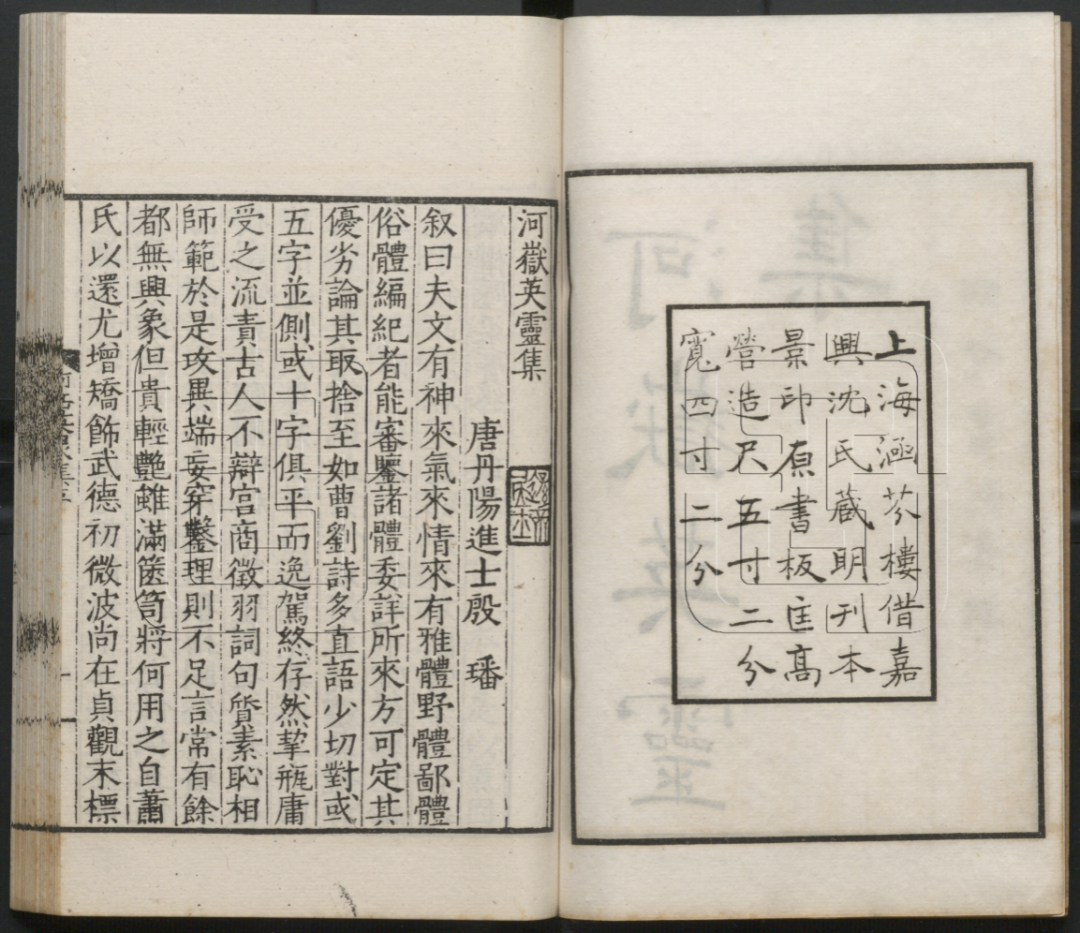 上海涵芬樓借嘉
興沈氏藏明刊本
景印原書板匡高
營造尺五寸二分
寬四寸二分
河嶽英靈集
唐丹陽進士殷 璠
叙曰夫文有神來氣來情來有雅體野體鄙體
俗體編紀者能審鑒諸體委詳所來方可定其
優劣論其取捨至如曹劉詩多直語少切對或
五字並側或十字俱平而逸駕終存然挈瓶庸
受之流責古人不辯宫商徵羽詞句質素恥相
師範於是攻異端妄穿鑿理則不足言常有餘
都無興象但貴輕艷雖滿篋笥將何用之自蕭
氏以還尤增矯飾武德初微波尚在貞觀末標